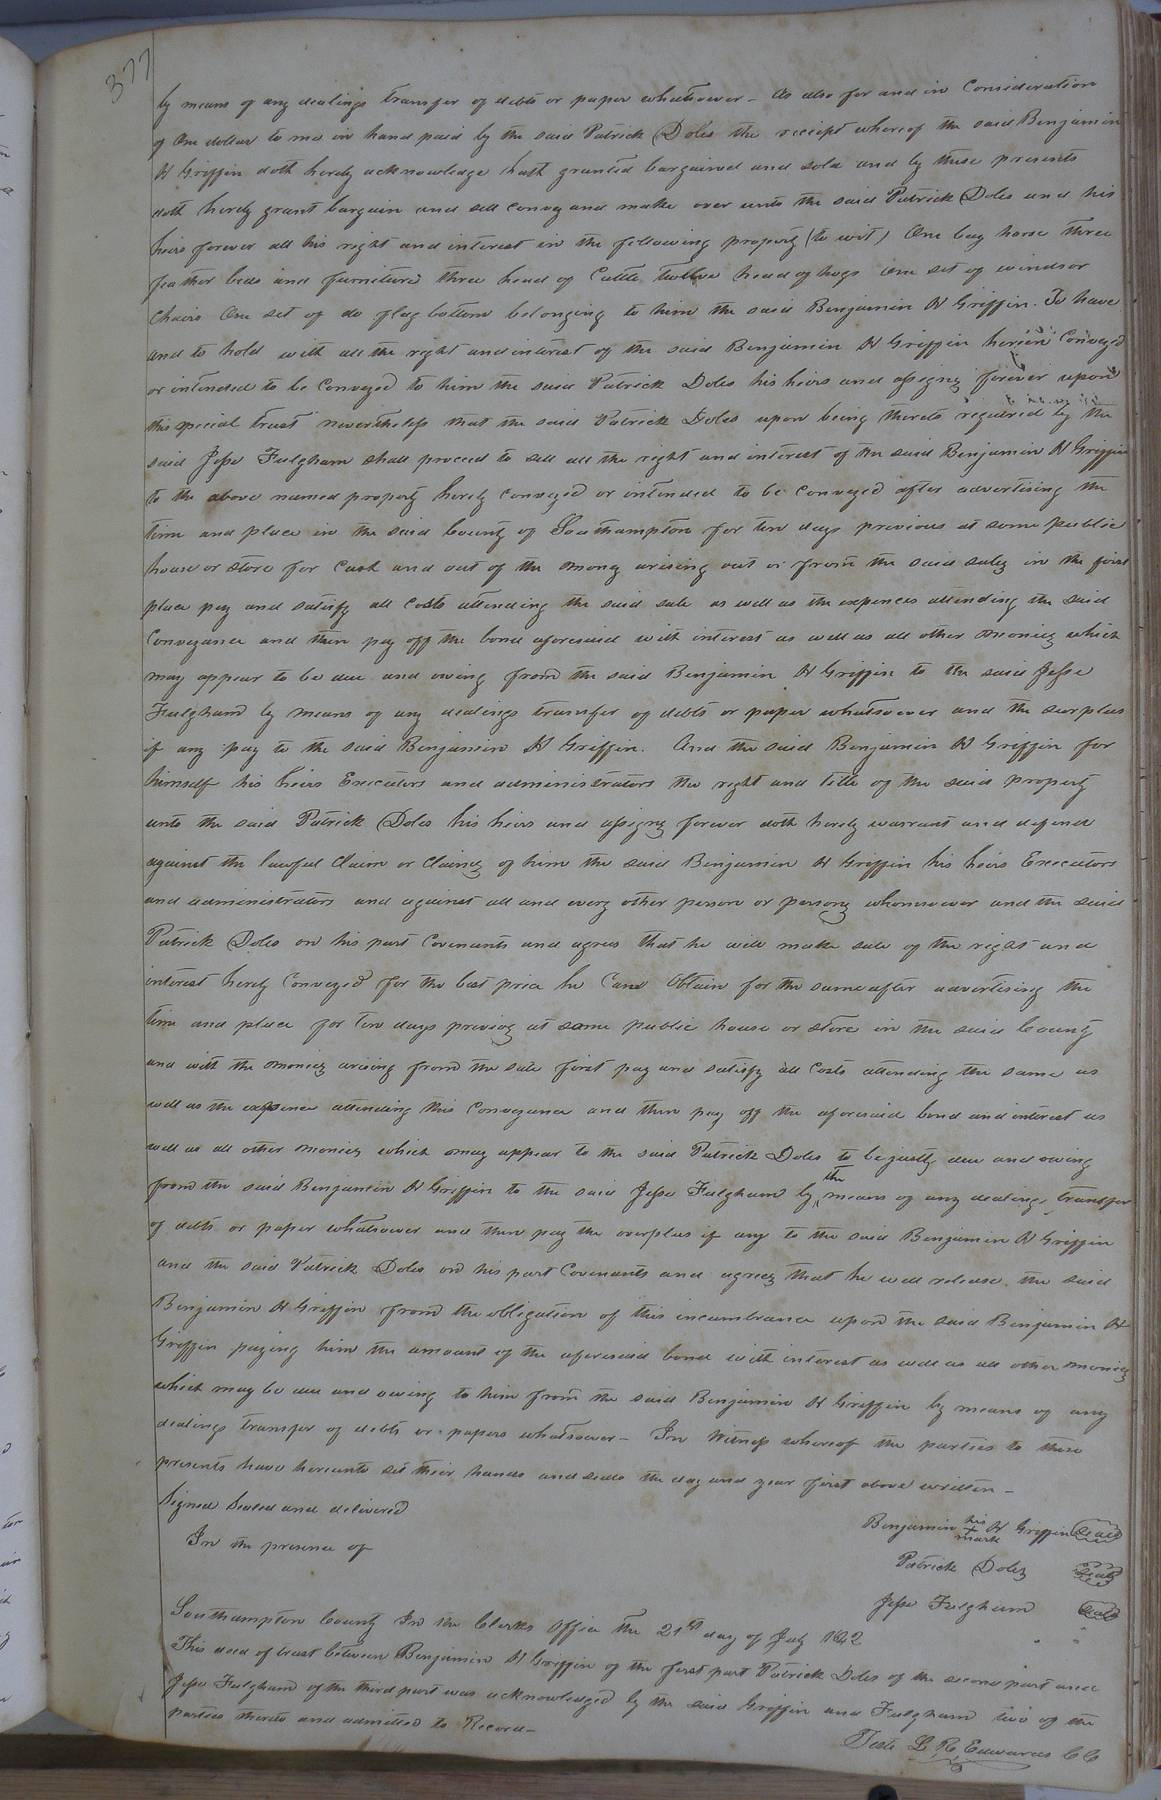 377
by means of any dealings transfer of debts or paper whatsoever – As also for and in Consideration
of One dollar to me in hand paid by the said Patrick Doles the receipt whereof the said Benjamin
H Griffin doth hereby acknowledge hath granted bargained and sold and by these presents
doth hereby grant bargain and sell convey and make over unto the said Patrick Doles and his
heirs forever all his right and interest in the following property (to wit) One bay horse three
feather beds and furniture three head of Cattle twelve head of hogs one set of windsor
Chairs One set of do flag bottom belonging to him the said Benjamin H Griffin. To have
and to hold with all the right and interest of the said Benjamin H Griffin herein Conveyed
or intended to be Conveyed to him the said Patrick Doles his heirs and assigns forever upon
this special trust nevertheless that the said Patrick Doles upon being thereto required by the
said Jesse Fulgham shall proceed to sell all the right and interest of the said Benjamin H Griffin
to the above named property hereby conveyed or intended to be Conveyed after advertising the
time and place in the said County of Southampton for ten days previous at some public
house or store for Cash and out of the money arising out or from the said sales in the first
place pay and satisfy all costs attending the said sale as well as the expences attending the said
Conveyance and then pay off the bond aforesaid with interest as well as all other monies which
may appear to be due and owing from the said Benjamin H Griffin to the said Jesse
Fulgham by means of any dealings transfer of debts or paper whatsoever and the surplus
if any pay to the said Benjamin H Griffin. And the said Benjamin H Griffin for
himself his heirs Executors and administrators the right and title of the said property
unto the said Patrick Doles his heirs and assigns forever doth hereby warrant and defend
against the lawful Claim or Claims of him the said Benjamin H Griffin his heirs Executors
and administrators and against all and every other person or persons whomsoever and the said
Patrick Doles on his part Covenants and agrees that he will make sale of the right and
interest hereby Conveyed for the best price he Can Obtain for the same after advertising the
time and place for ten days previous at some public house or store in the said County
and with the monies arising from the sale first pay and satisfy all Costs attending the same as
well as the expence attending this Conveyance and then pay off the aforesaid bond and interest as
well as all other monies which may appear to the said Patrick Doles to be justly due and owing
from the said Benjamin H Griffin to the said Jesse Fulgham by the means of any dealings transfer
of debts or paper whatsoever and then pay the overplus if any to the said Benjamin H Griffin
and the said Patrick Doles on his part Covenants and agrees that he will release the said
Benjamin H Griffin from the obligation of this incumbrance upon the said Benjamin H
Griffin paying him the amount of the aforesaid bond with interest as well as all other monies
which may be due and owing to him from the said Benjamin H Griffin by means of any
dealings transfer of debts or papers whatsoever – In Witness whereof the parties to these
presents have hereunto set their hands and seals the day and year first above written –
Signed Sealed and delivered
In the presence of
Benjamin his + mark H Griffin Seal
Patrick Doles Seal
Jesse Fulgham Seal
Southampton County In the Clerks Office the 21st day of July 1842
This deed of trust between Benjamin H Griffin of the first part Patrick Doles of the second part and
Jesse Fulgham of the third part was acknowledged by the said Griffin and Fulgham two of the
parties thereto and admitted to Record –
Teste L R Edwards CC